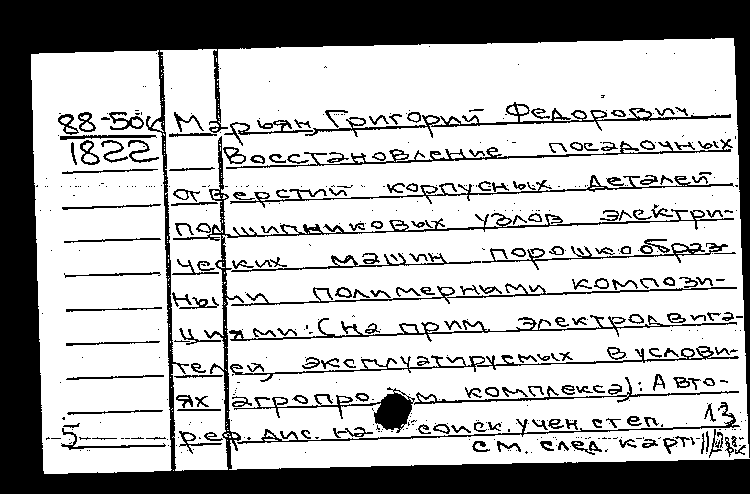 88-50к Марьян, Григорий Федорович
1822 Восстановление посадочных
отверстий корпусных деталей
подшипниковых узлов электри-
ческих машин порошкообраз-
ными полимерными компози-
циями: (на прим электродвига-
телей, эксплуатируемых в услови-
ях агропро м. комплекса): Авто-
5 реф. дис. на соиск. учен. степ. 13
см. след. карт